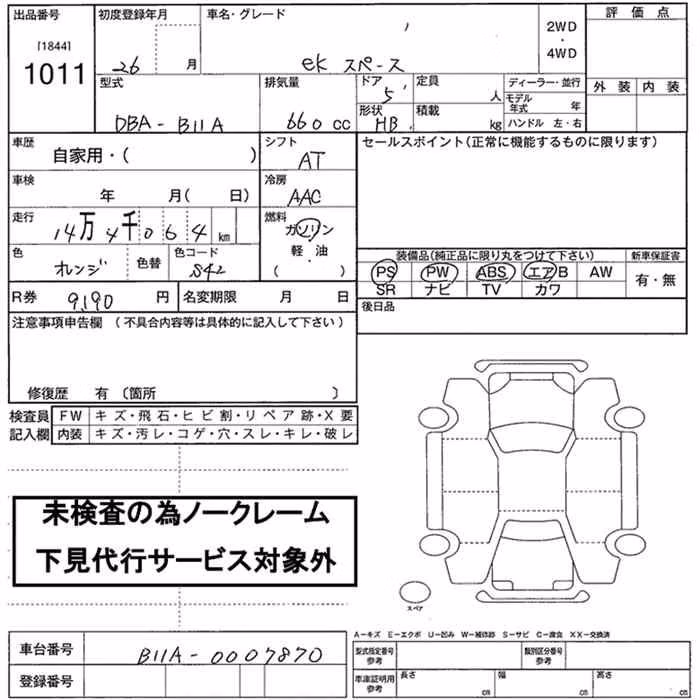 出品番号 初度登録年月 車名・グレード 評価点
[1844] 2WD
・
1011 26 月 ekスペース 4WD
型式 排気量 ドア 5 定員 人 ディーラー・並行 外装 内装
モデル年式 年
DBA-B11A 660cc 形状 HB 積載 kg ハンドル 左・右
車歴 自家用・( ) シフト AT セールスポイント(正常に機能するものに限ります)
車検 年 月( 日) 冷房 AAC
走行 14万4千064km 燃料 ガソリン
軽・油
( )
色 オレンジ 色替 色コード S42
装備品(純正品に限り丸をつけて下さい) 新車保証書
PS PW ABS エアB AW 有・無
SR ナビ TV カワ
R券 9,190円 名変期限 月 日 後日品
注意事項申告欄(不具合内容等は具体的に記入して下さい)
修復歴 有(箇所 )
検査員 FW キズ・飛石・ヒビ割・リペア跡・X要
記入欄 内装 キズ・汚レ・コゲ・穴・スレ・キレ・破レ
未検査の為ノークレーム
下見代行サービス対象外
スペア
A-キズ E-エクボ U-凹み W-補修跡 S-サビ C-腐食 XX-交換済
車台番号 B11A-0007870 型式指定番号 参考 類別区分番号 参考
登録番号 車庫証明用 参考 長さ cm 幅 cm 高さ cm